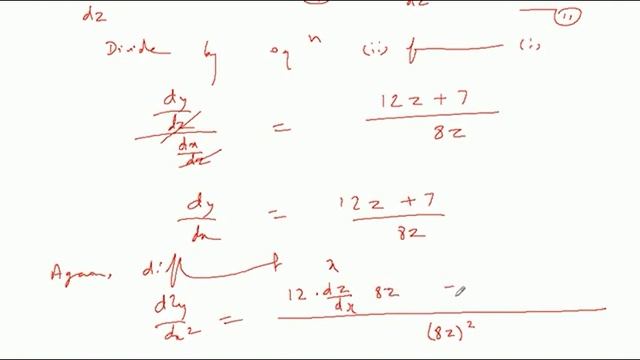 dz dz (ii)
Divide by eqn (ii) f (i)
dy/dz / dx/dz = 12z + 7 / 8z
dy/dx = 12z + 7 / 8z
Again, diff x
d²y/dx² = 12 · dz/dx 8z - / (8z)²